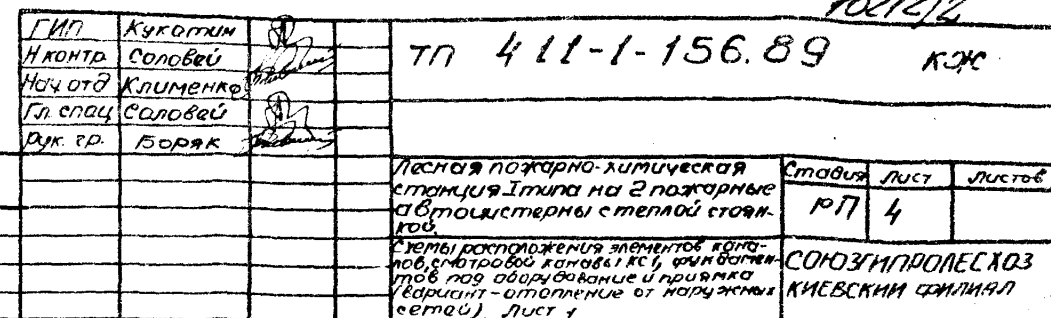 ГИП Кукотин
Н контр Соловей
Нач отд Клименко
Гл. спец Соловей
Рук. гр. Боряк
ТП 411-1-156.89 КЖ
Лесная пожарно-химическая
станция I типа на 2 пожарные
автоцистерны с теплой стоян-
кой.
Стадия Лист Листов
РП 4
Схемы расположения элементов кана-
лов, смотровой канавы КС1, фундамен-
тов под оборудование и приямка
(вариант-отопление от наружных
сетей). Лист 1
СОЮЗГИПРОЛЕСХОЗ
КИЕВСКИЙ ФИЛИАЛ